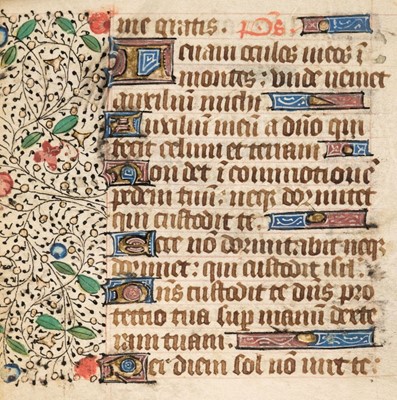 me gratis. Ps.
Leuam oculos meos ĩ
montes: vnde veniet
auxiliũ michi
Auxiliũ meũ a dño qui
fecit celum et terram
Non det ĩ commotionẽ
pedem tuũ: neqꝫ dormitet
qui custodit te.
Ecce nõ dormitabit neqꝫ
dormiet: qui custodit isrl.
Dñs custodit te dñs pro
tectio tua sup manũ dexte
ram tuam.
Per diem sol nõ vret te: